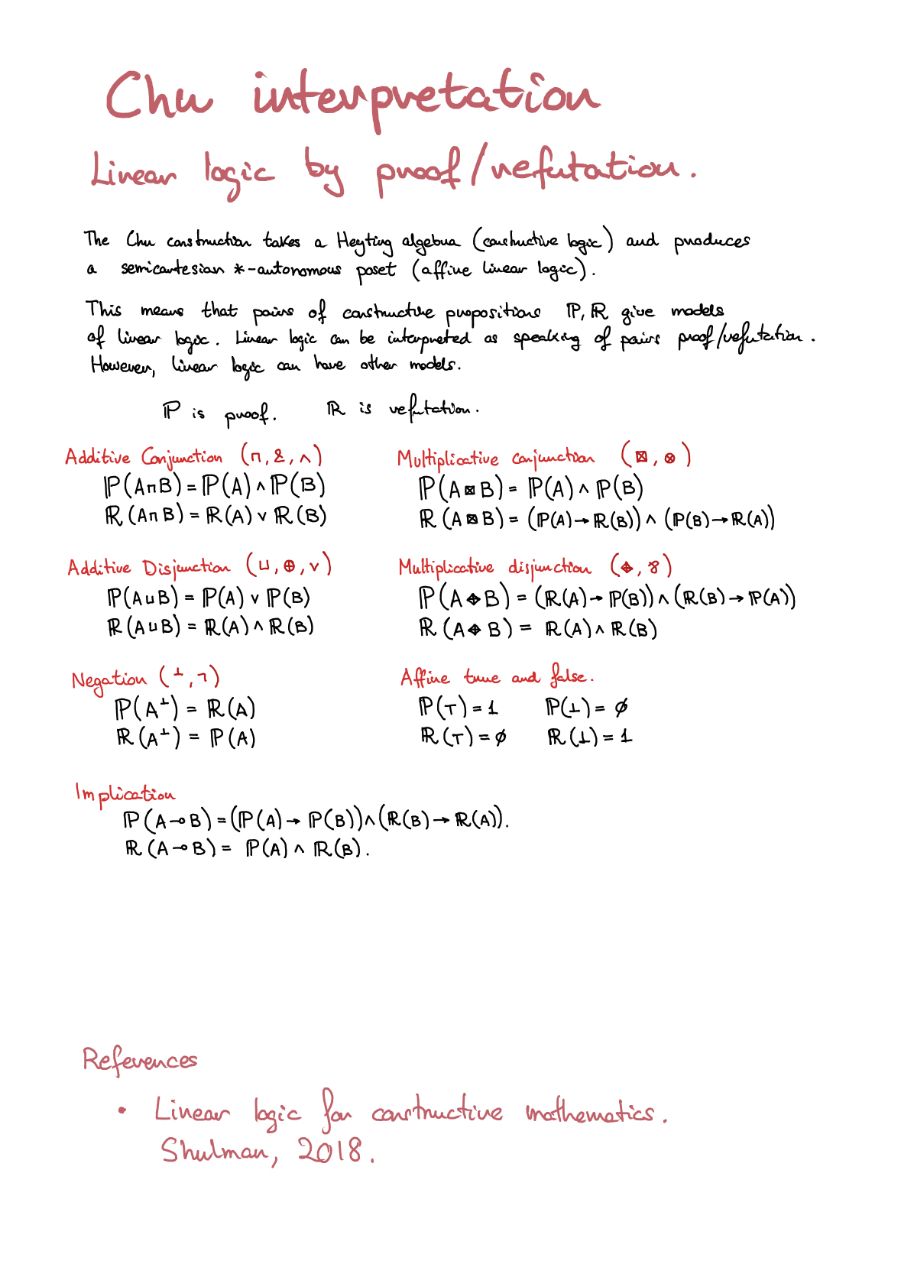 Chu interpretation
Linear logic by proof/refutation.
The Chu construction takes a Heyting algebra (constructive logic) and produces
a semicartesian *-autonomous poset (affine linear logic).
This means that pairs of constructive propositions ℙ, ℝ give models
of linear logic. Linear logic can be interpreted as speaking of pairs proof/refutation.
However, linear logic can have other models.
ℙ is proof. ℝ is refutation.
Additive Conjunction (⊓, &, ∧)
ℙ(A⊓B) = ℙ(A) ∧ ℙ(B)
ℝ(A⊓B) = ℝ(A) ∨ ℝ(B)
Multiplicative conjunction (⊠, ⊗)
ℙ(A⊠B) = ℙ(A) ∧ ℙ(B)
ℝ(A⊠B) = (ℙ(A)→ℝ(B)) ∧ (ℙ(B)→ℝ(A))
Additive Disjunction (⊔, ⊕, ∨)
ℙ(A⊔B) = ℙ(A) ∨ ℙ(B)
ℝ(A⊔B) = ℝ(A) ∧ ℝ(B)
Multiplicative disjunction (⟴, ⅋)
ℙ(A⟴B) = (ℝ(A)→ℙ(B)) ∧ (ℝ(B)→ℙ(A))
ℝ(A⟴B) = ℝ(A) ∧ ℝ(B)
Negation (⊥, ¬)
ℙ(A^⊥) = ℝ(A)
ℝ(A^⊥) = ℙ(A)
Affine true and false.
ℙ(⊤) = 1 ℙ(⊥) = ∅
ℝ(⊤) = ∅ ℝ(⊥) = 1
Implication
ℙ(A⊸B) = (ℙ(A)→ℙ(B)) ∧ (ℝ(B)→ℝ(A)).
ℝ(A⊸B) = ℙ(A) ∧ ℝ(B).
References
• Linear logic for constructive mathematics.
Shulman, 2018.